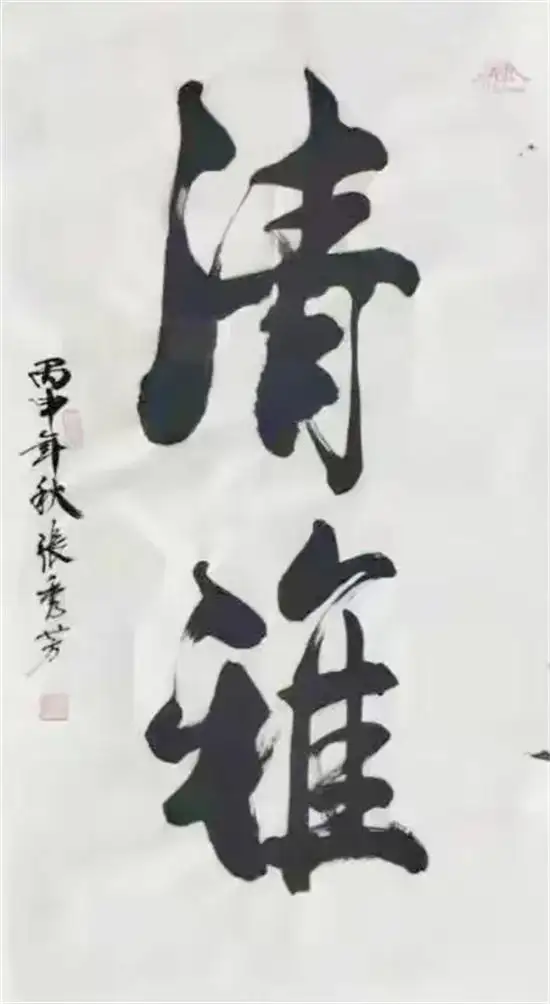 清雅
丙申年秋張秀芳